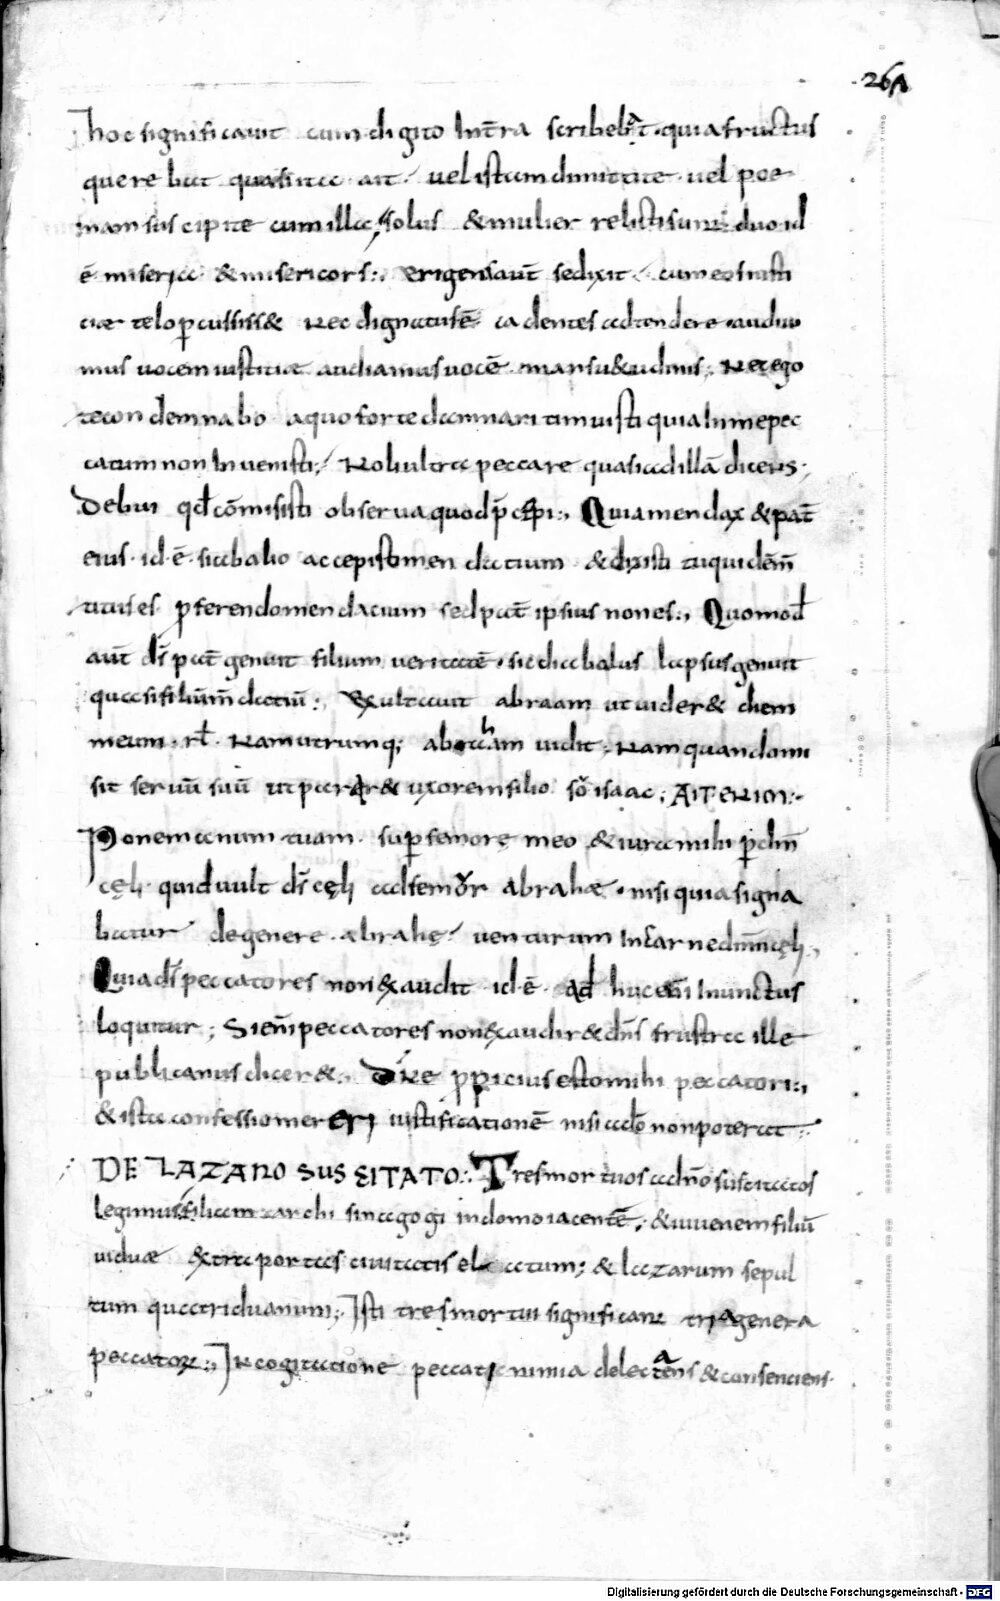 26A
hoc significauit cum digito In tr̄a scribebat · quia fructus
querebat quasi itae ait / uel istam dimittite · uel poe
nam suscipite cum illa; solus & mulier relicti sunt duo id
ē misera · & misericors:, erigens aūt se dixit / cum eos iusti
ciae telo ꝑcussiss& Nec dignatus ē cadentes adtendere · audiui
mus uocem iustitiae audiamus uocē mansu&udinis; Nec ego
te condemnabo a quo forte damnari timuisti quia In me pec
catum non Inuenisti; / Noli ultra peccare quasi ad illā diceris;
Debui qđ cōmisisti obserua quod p̄cepi:, Quia mendax & pat̄
eius · id · ē · sicabalio accepisti mendatium & dixisti tu quidem̄
tutus es ꝓferendo mendacium sed pat̄ ipsius non es:, Quomođ
aūt ds̄ pat̄ genuit filium ueritatē · sic diabalus lapsus genuit
quasi filiūm̄ datiū:, Exultauit abraam ut uider& diem
meum · rł · Nam utrumq; abraham uidit; Nam quando mi
sit seruū suū ut p&er& uxorem filio sō isaac; AIT ENIM:·
Pone manum tuam · suꝑ femore meo & iura mihi ꝑ dm̄
cęli · quid uult ds̄ cęli ad femor abrahae · nisi quia signa
batur de genere · abrahę / uenturum In carne dnm̄ cęli;
Quia ds̄ peccatores non exaudit · id · ē · Ađ huc eni Inunctus
loquitur; Si eni peccatores non exaudir& dns̄ frustra ille
publicanus dicer&:, Dne ꝓpicius esto mihi peccatori:,
& ista confessio mereri iustificationē nisi a do non poterat:
DE LAZARO SUSCITATO:. Tres mortuos a dn̄o suscitatos
legimus filiam archisinagogi in domo iacentē; & iuuenem filiū
uiduae extra portas ciuitatis elatum; & lazarum sepul
tum quatriduanum; Isti tres mortui significant tria genera
peccatorum:, In cogitatione peccati nimia delectans & consenciens·
Digitalisierung gefördert durch die Deutsche Forschungsgemeinschaft - DFG